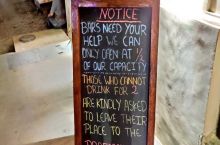 NOTICE
BARS NEED YOUR
HELP WE CAN
ONLY OPEN AT ½
OF OUR CAPACITY
THOSE WHO CANNOT
DRINK FOR 2
ARE KINDLY ASKED
TO LEAVE THEIR
PLACE TO THE